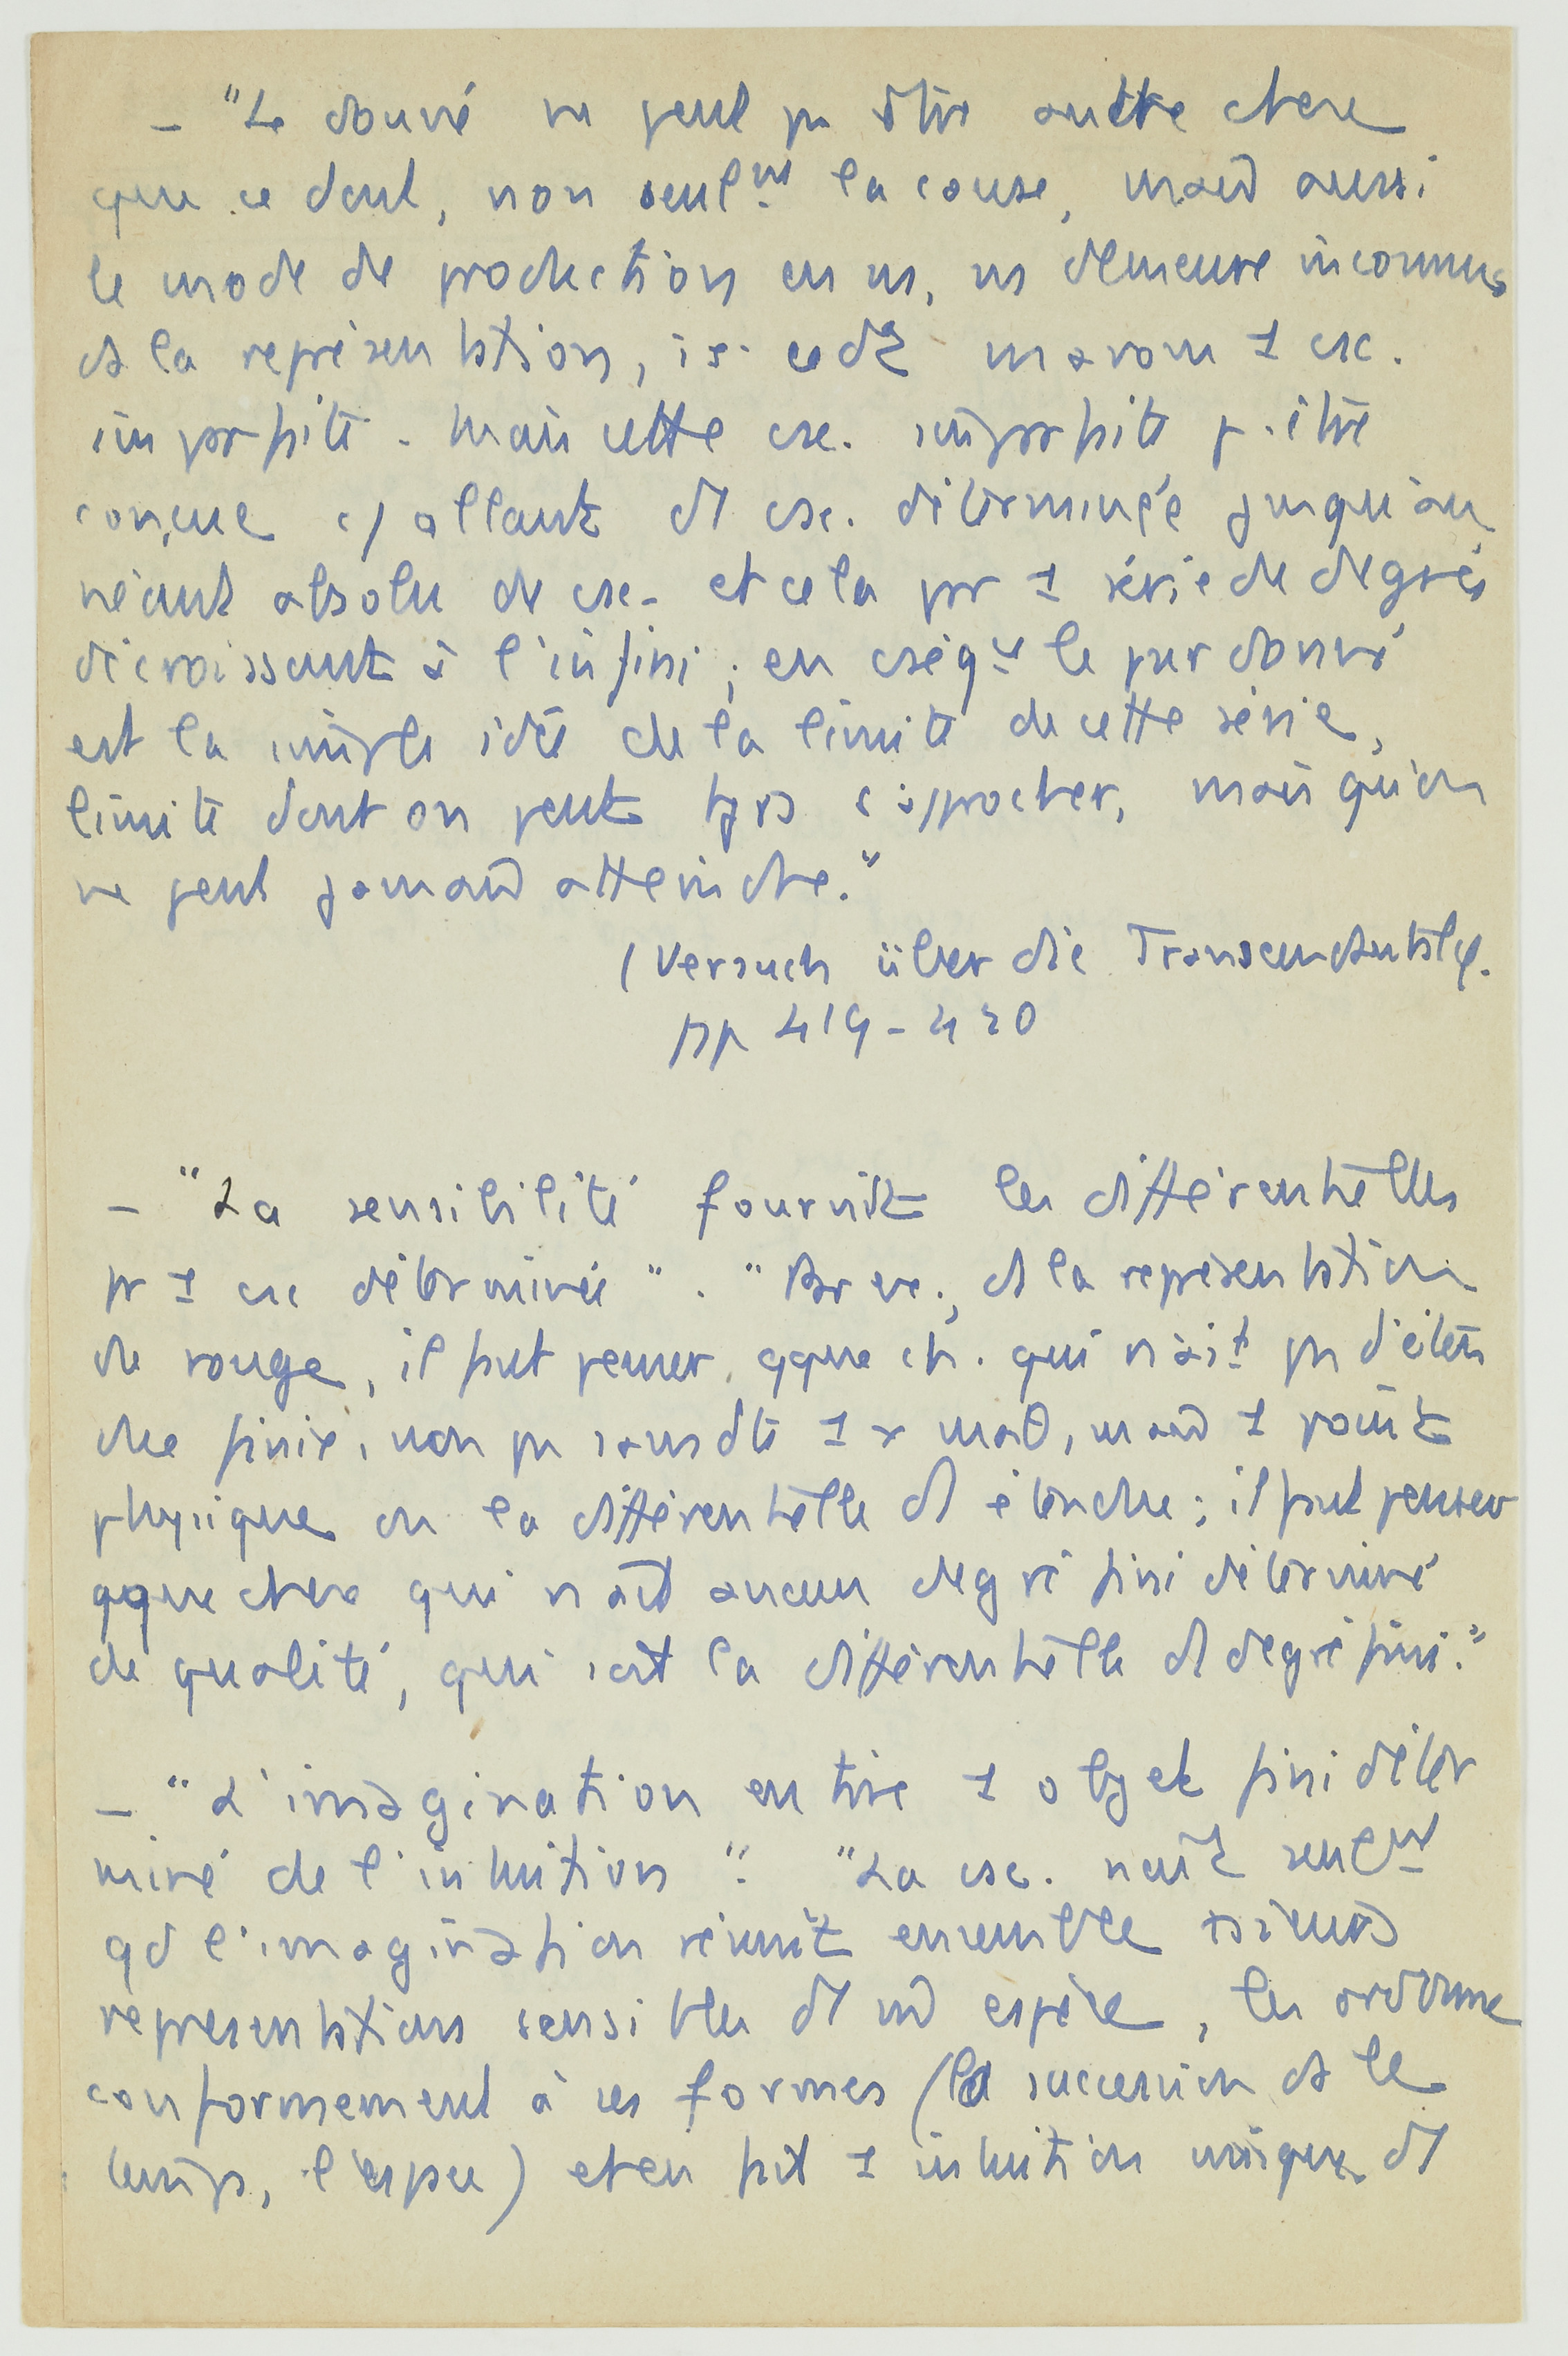 – "Le donné ne peut pas être autre chose
que ce dont, non seulmt la cause, mais aussi
le mode de production en ns, ns demeure inconnus
ds la représentation, i.e. ce dt ns avons 1 csc.
imparfaite. Mais cette csc. imparfaite p. être
conçue c/ allant d'1 csc. déterminée jusqu'au
néant absolu de csc. et cela par 1 série de degrés
décroissant à l'infini ; en cséqce le pur donné
est la simple idée de la limite de cette série,
limite dont on peut tjrs s'approcher, mais qu'on
ne peut jamais atteindre."
(Versuch über die Transcendentalφ.
pp 419-420
– "La sensibilité fournit les différentielles
pr 1 csc déterminée". "Par ex., ds la représentation
du rouge, il faut penser qque ch. qui n'ait pas d'éten
due finie, non pas sans dte 1 x math, mais 1 point
physique ou la différentielle d'1 étendue ; il faut penser
qque chose qui n'ait aucun degré fini déterminé
de qualité, qui soit la différentielle d'1 degré fini."
– "L'imagination en tire 1 objet fini déter
miné de l'intuition". "La csc. naît seulmt
qd l'imagination réunit ensemble
représentations sensibles d'1 m̂ espèce, les ordonne
conformement à ses formes (la succession ds le
temps, l'espace) et en fait 1 intuition unique d'1